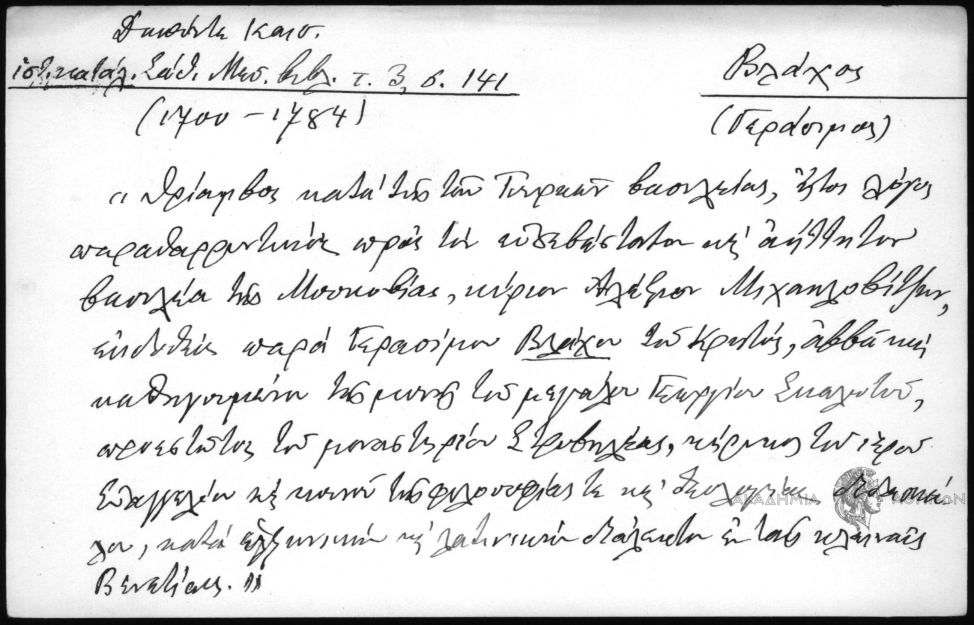 Δαπόντε Καισ.
ἱστ. κατάλ. Σάθ. Μεσ. βιβλ. τ. 3, σ. 141
Βλάχος
(1700 – 1784)
(Γεράσιμος)
«Θρίαμβος κατὰ τῆς τῶν Τουρκῶν βασιλείας, ἤτοι λόγος
παραθαρρυντικὸς πρὸς τὸν εὐσεβέστατον κ̀ ἀήττητον
βασιλέα τῆς Μοσκοβίας, κύριον Ἀλέξιον Μιχαηλοβίτζην,
ἐκδοθεὶς παρὰ Γερασίμου Βλάχου τοῦ Κρητός, ἀββᾶ καὶ
καθηγουμένου τῆς μονῆς τοῦ μεγάλου Γεωργίου Σκαλωτοῦ,
προεστῶτος τοῦ μοναστηρίου Στροβηλέας, κήρυκος τοῦ ἱεροῦ
Εὐαγγελίου κ̀ κοινοῦ τῆς φιλοσοφίας τε κ̀ θεολογίας διδασκά
λου, κατὰ ἑλληνικὴν κ̀ λατινικὴν διάλεκτον ἐν ταῖς κλειναῖς
Βενετίαις.»
ΑΚΑΔΗΜΙΑ ΑΘΗΝΩΝ